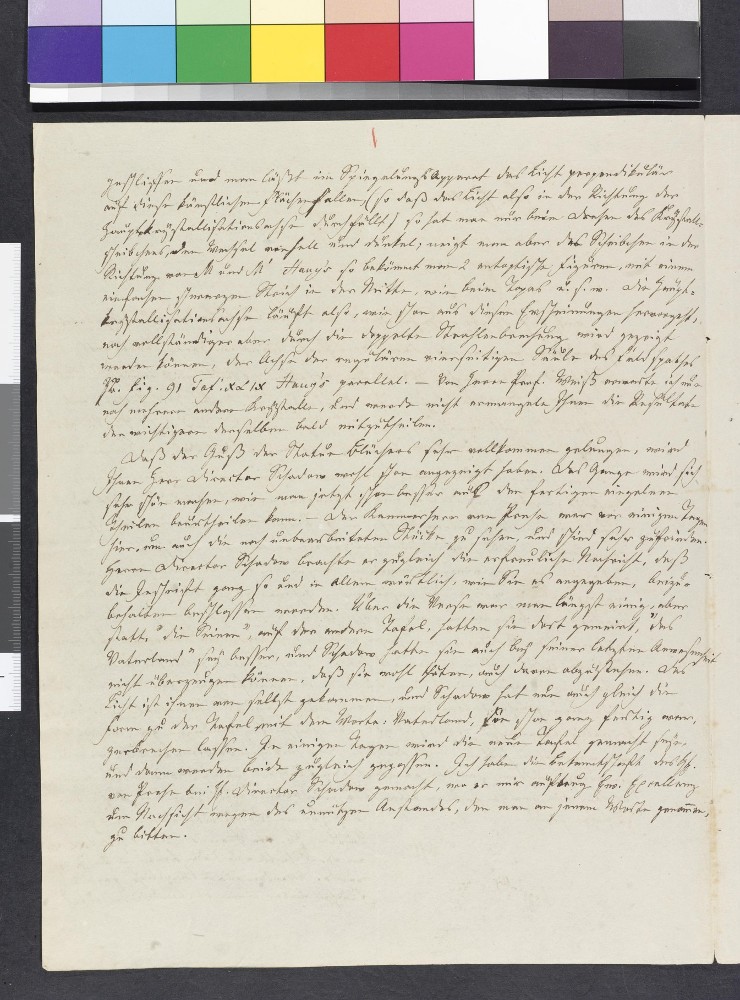 geschliffen und man läßt im Spiegelungs Apparat das Licht perpendikulär
auf diese künstlichen Flächen fallen, (so daß das Licht also in der Richtung der
Hauptkrystallisationsachse durchfällt) so hat man nur beim Drehen des Krystall-
scheibchens den Wechsel von hell und dunkel; neigt man aber das Scheibchen in der
Richtung von M und M' Hauy's so bekömmt man 2 entoptische Figuren, mit einem
einfachen schwarzen Strich in der Mitte, wie beim Topas u. s. w. Die Haupt-
krystallisationsachse läuft also, wie schon aus diesen Erscheinungen hervorgeht,
noch vollständiger aber durch die doppelte Strahlenbrechung wird gezeigt
werden können, der Achse der regulären vierseitigen Säule des Feldspathes
Fig. 91 Taf. Hauy's parallel. – Von Herrn Prof. Weiß erwarte ich nur
noch mehrere andere Krystalle, und werde nicht ermangeln Ihnen die Resultate
der wichtigern derselben bald mitzutheilen.
Daß der Guß der Statue Blüchers sehr vollkommen gelungen, wird
Ihnen Herr Director Schadow wohl schon angezeigt haben. Das Ganze wird sich
sehr schön machen, wie man jetzt schon besser aus den fertigen einzelnen
Theilen beurtheilen kann. – Der Kammerherr von Preha war vor einigen Tagen
hier, um auch die noch unbearbeiteten Stücke zu sehen, und schied sehr zufrieden.
Herrn Director Schadow brachte er zugleich die erfreuliche Nachricht, daß
die Inschrift ganz so und in allem wörtlich, wie Sie es angegeben, beizu-
behalten beschlossen worden. Über die Verse war man längst einig, aber
statt, "die Seinen", auf der andern Tafel, hatten sie dort gemeint, "das
Vaterland" sey besser, und Schadow hatte sie auch bey seiner letzten Anwesenheit
nicht überzeugen können, daß sie wohl thäten, auch davon abzustehen. Das
Licht ist ihnen von selbst gekommen, und Schadow hat nun auch gleich die
Form zu der Tafel mit dem Worte: Vaterland, die schon ganz fertig war,
zerbrechen lassen. In einigen Tagen wird die neue Tafel gemacht seyn
und dann werden beide zugleich gegossen. Ich habe die Bekanntschaft des H.
von Preha bei H. Director Schadow gemacht, wo er mir auftrug Ew. Excellenz
um Nachsicht wegen des unnützen Anstandes, den man an jenem Worte genommen,
zu bitten.